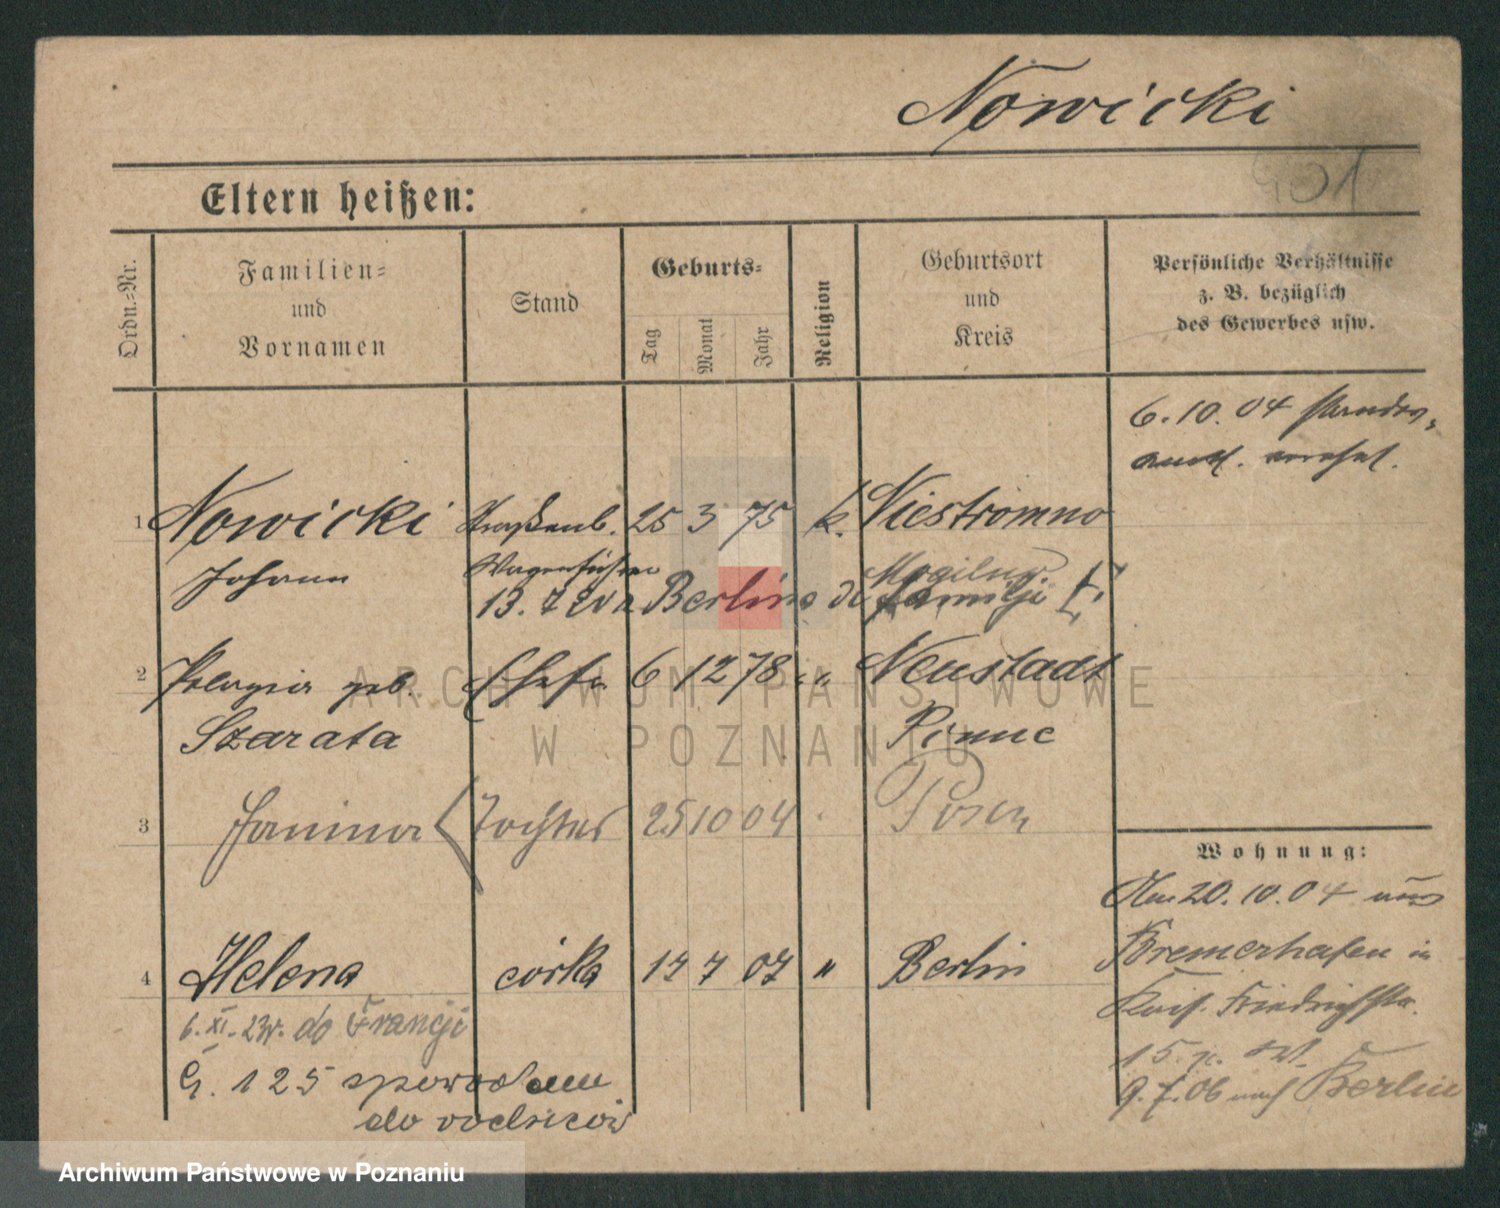 Nowicki
G01
Eltern heißen:
Ordn.-Nr.
Familien-
und
Vornamen
Stand
Geburts-
Tag
Monat
Jahr
Religion
Geburtsort
und
Kreis
Persönliche Verhältnisse
z. B. bezüglich
des Gewerbes usw.
6. 10. 04 standes,
amtl. verehel.
1 Nowicki Straßenb. 25 3 75 k. Niestromno
Johann Wagenführer Mogilno
13. 7 20 z Berlina do familji
2 Pelagia geb. Ehefr 6 12 78 " Neustadt
Szarata Pinne
3 Janina Tochter 25 10 04 Posen
Wohnung:
Am 20. 10. 04 aus
Bremerhafen in
Kais. Friedrichstr.
15. p.
9. 7. 06 nach Berlin
4 Helena córka 14 7 07 " Berlin
6. XI. 23r. do Francji
G. 125 spowodem
do rodziców
ARCHIWUM PAŃSTWOWE
W POZNANIU
Archiwum Państwowe w Poznaniu